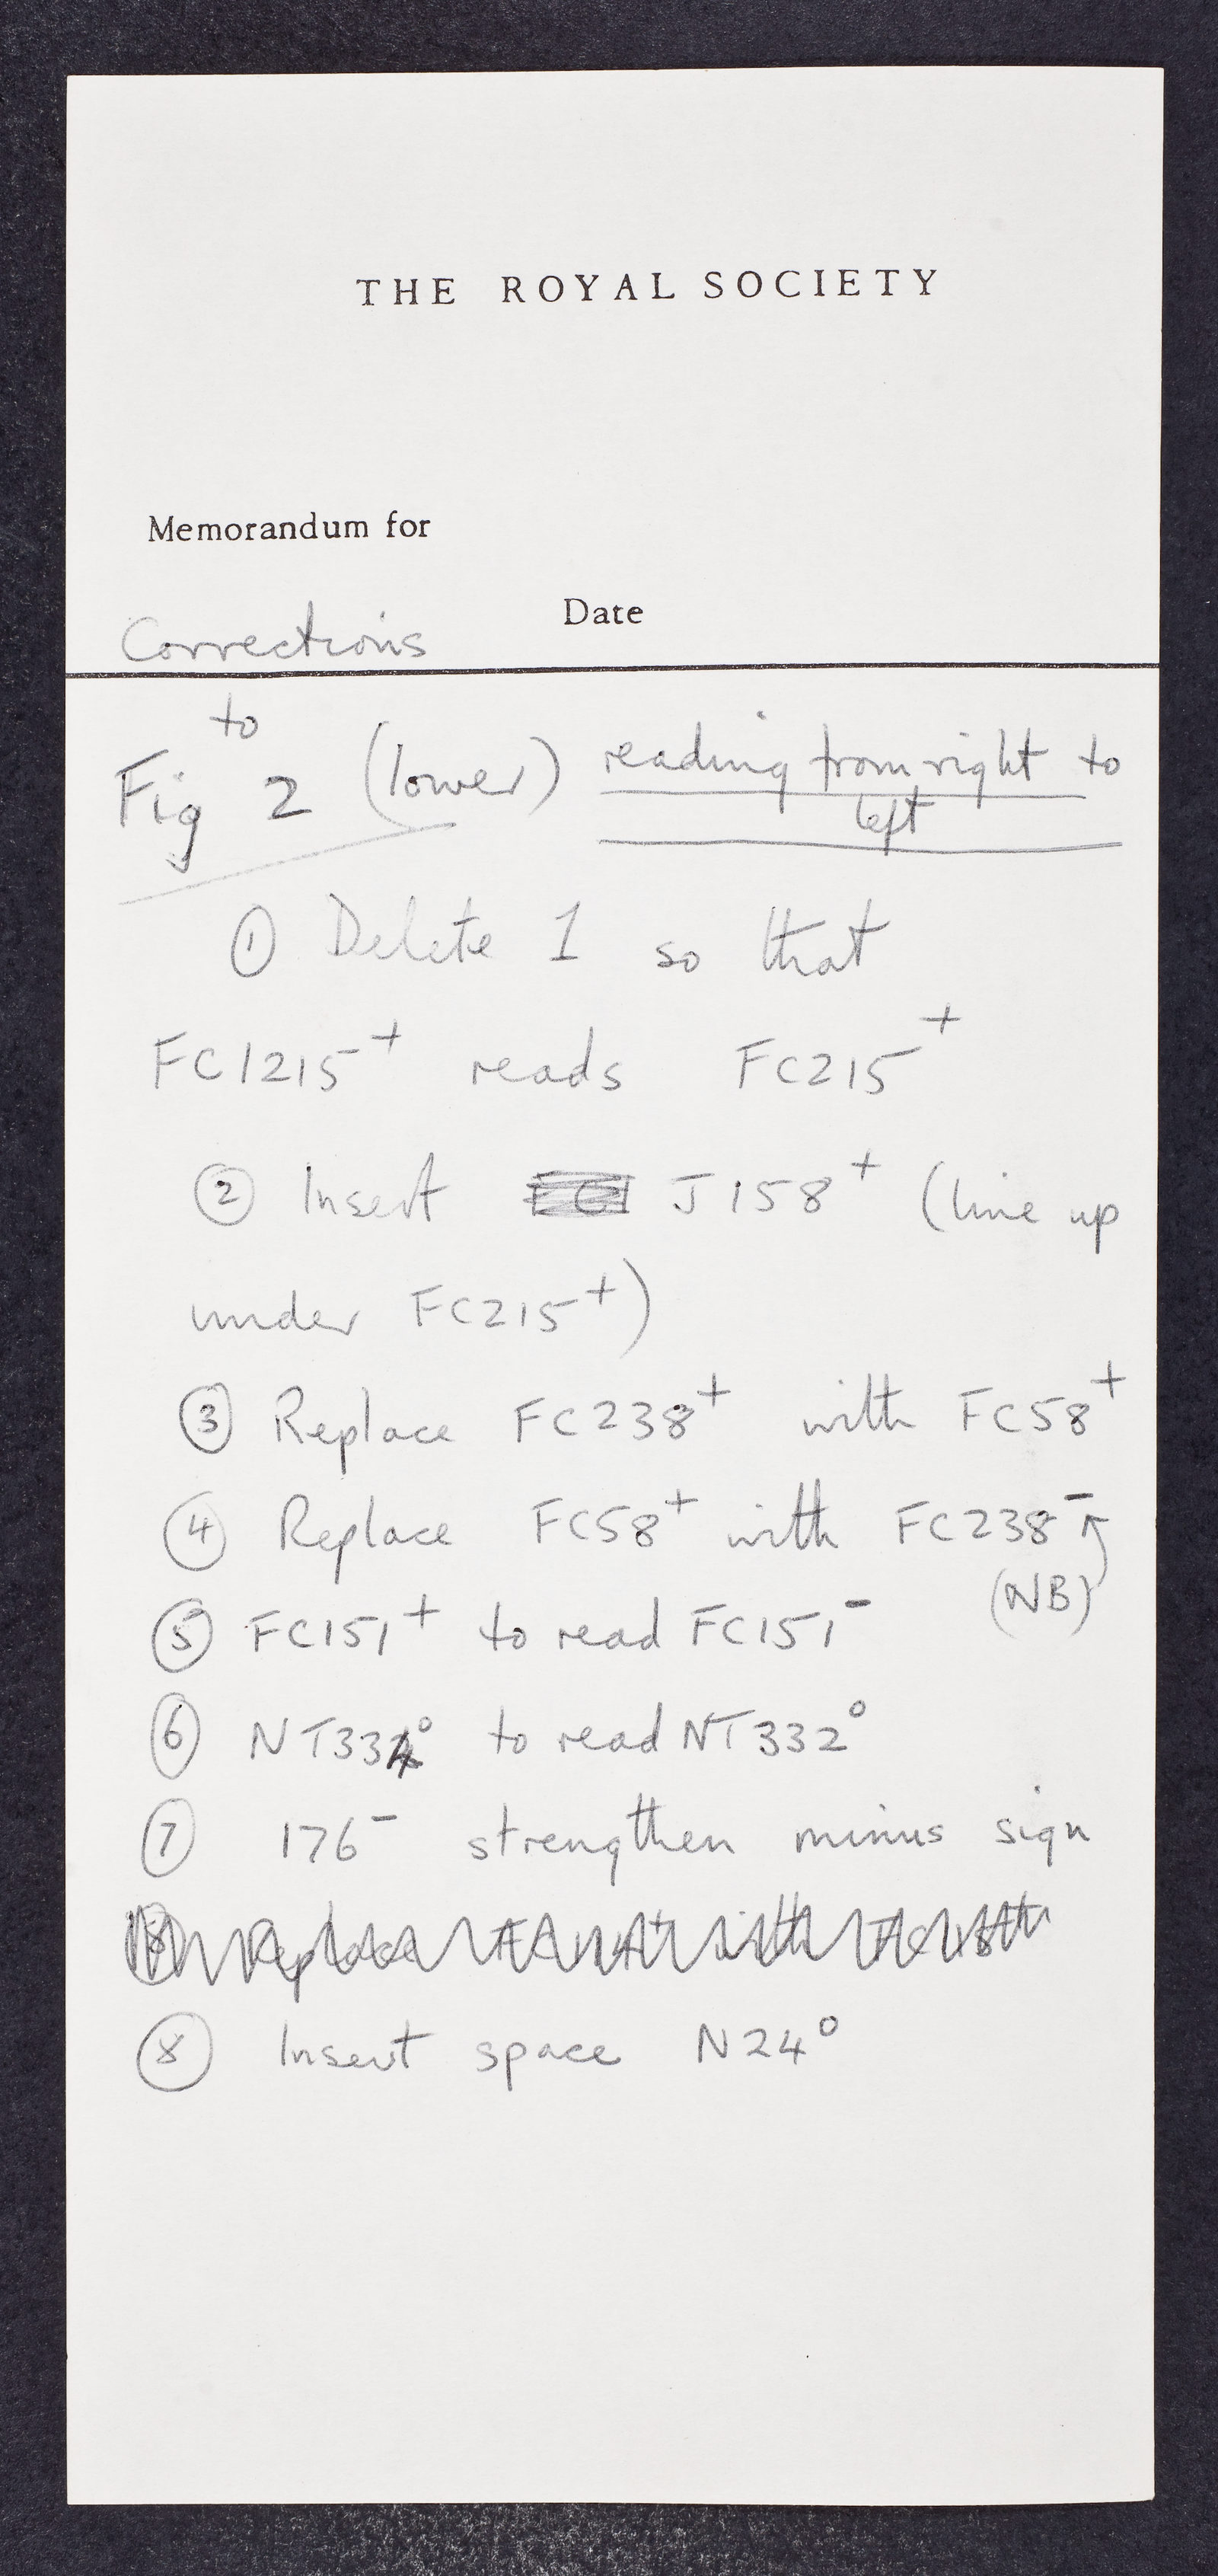 THE ROYAL SOCIETY
Memorandum for
Date
Corrections
to
Fig 2 (lower) reading from right to
left
① Delete 1 so that
FC1215⁺ reads FC215⁺
② Insert J158⁺ (line up
under FC215⁺)
③ Replace FC238⁺ with FC58⁺
④ Replace FC58⁺ with FC238⁻
(NB)
⑤ FC151⁺ to read FC151⁻
⑥ NT334° to read NT332°
⑦ 176⁻ strengthen minus sign
⑧ Replace with
⑧ Insert space N24°